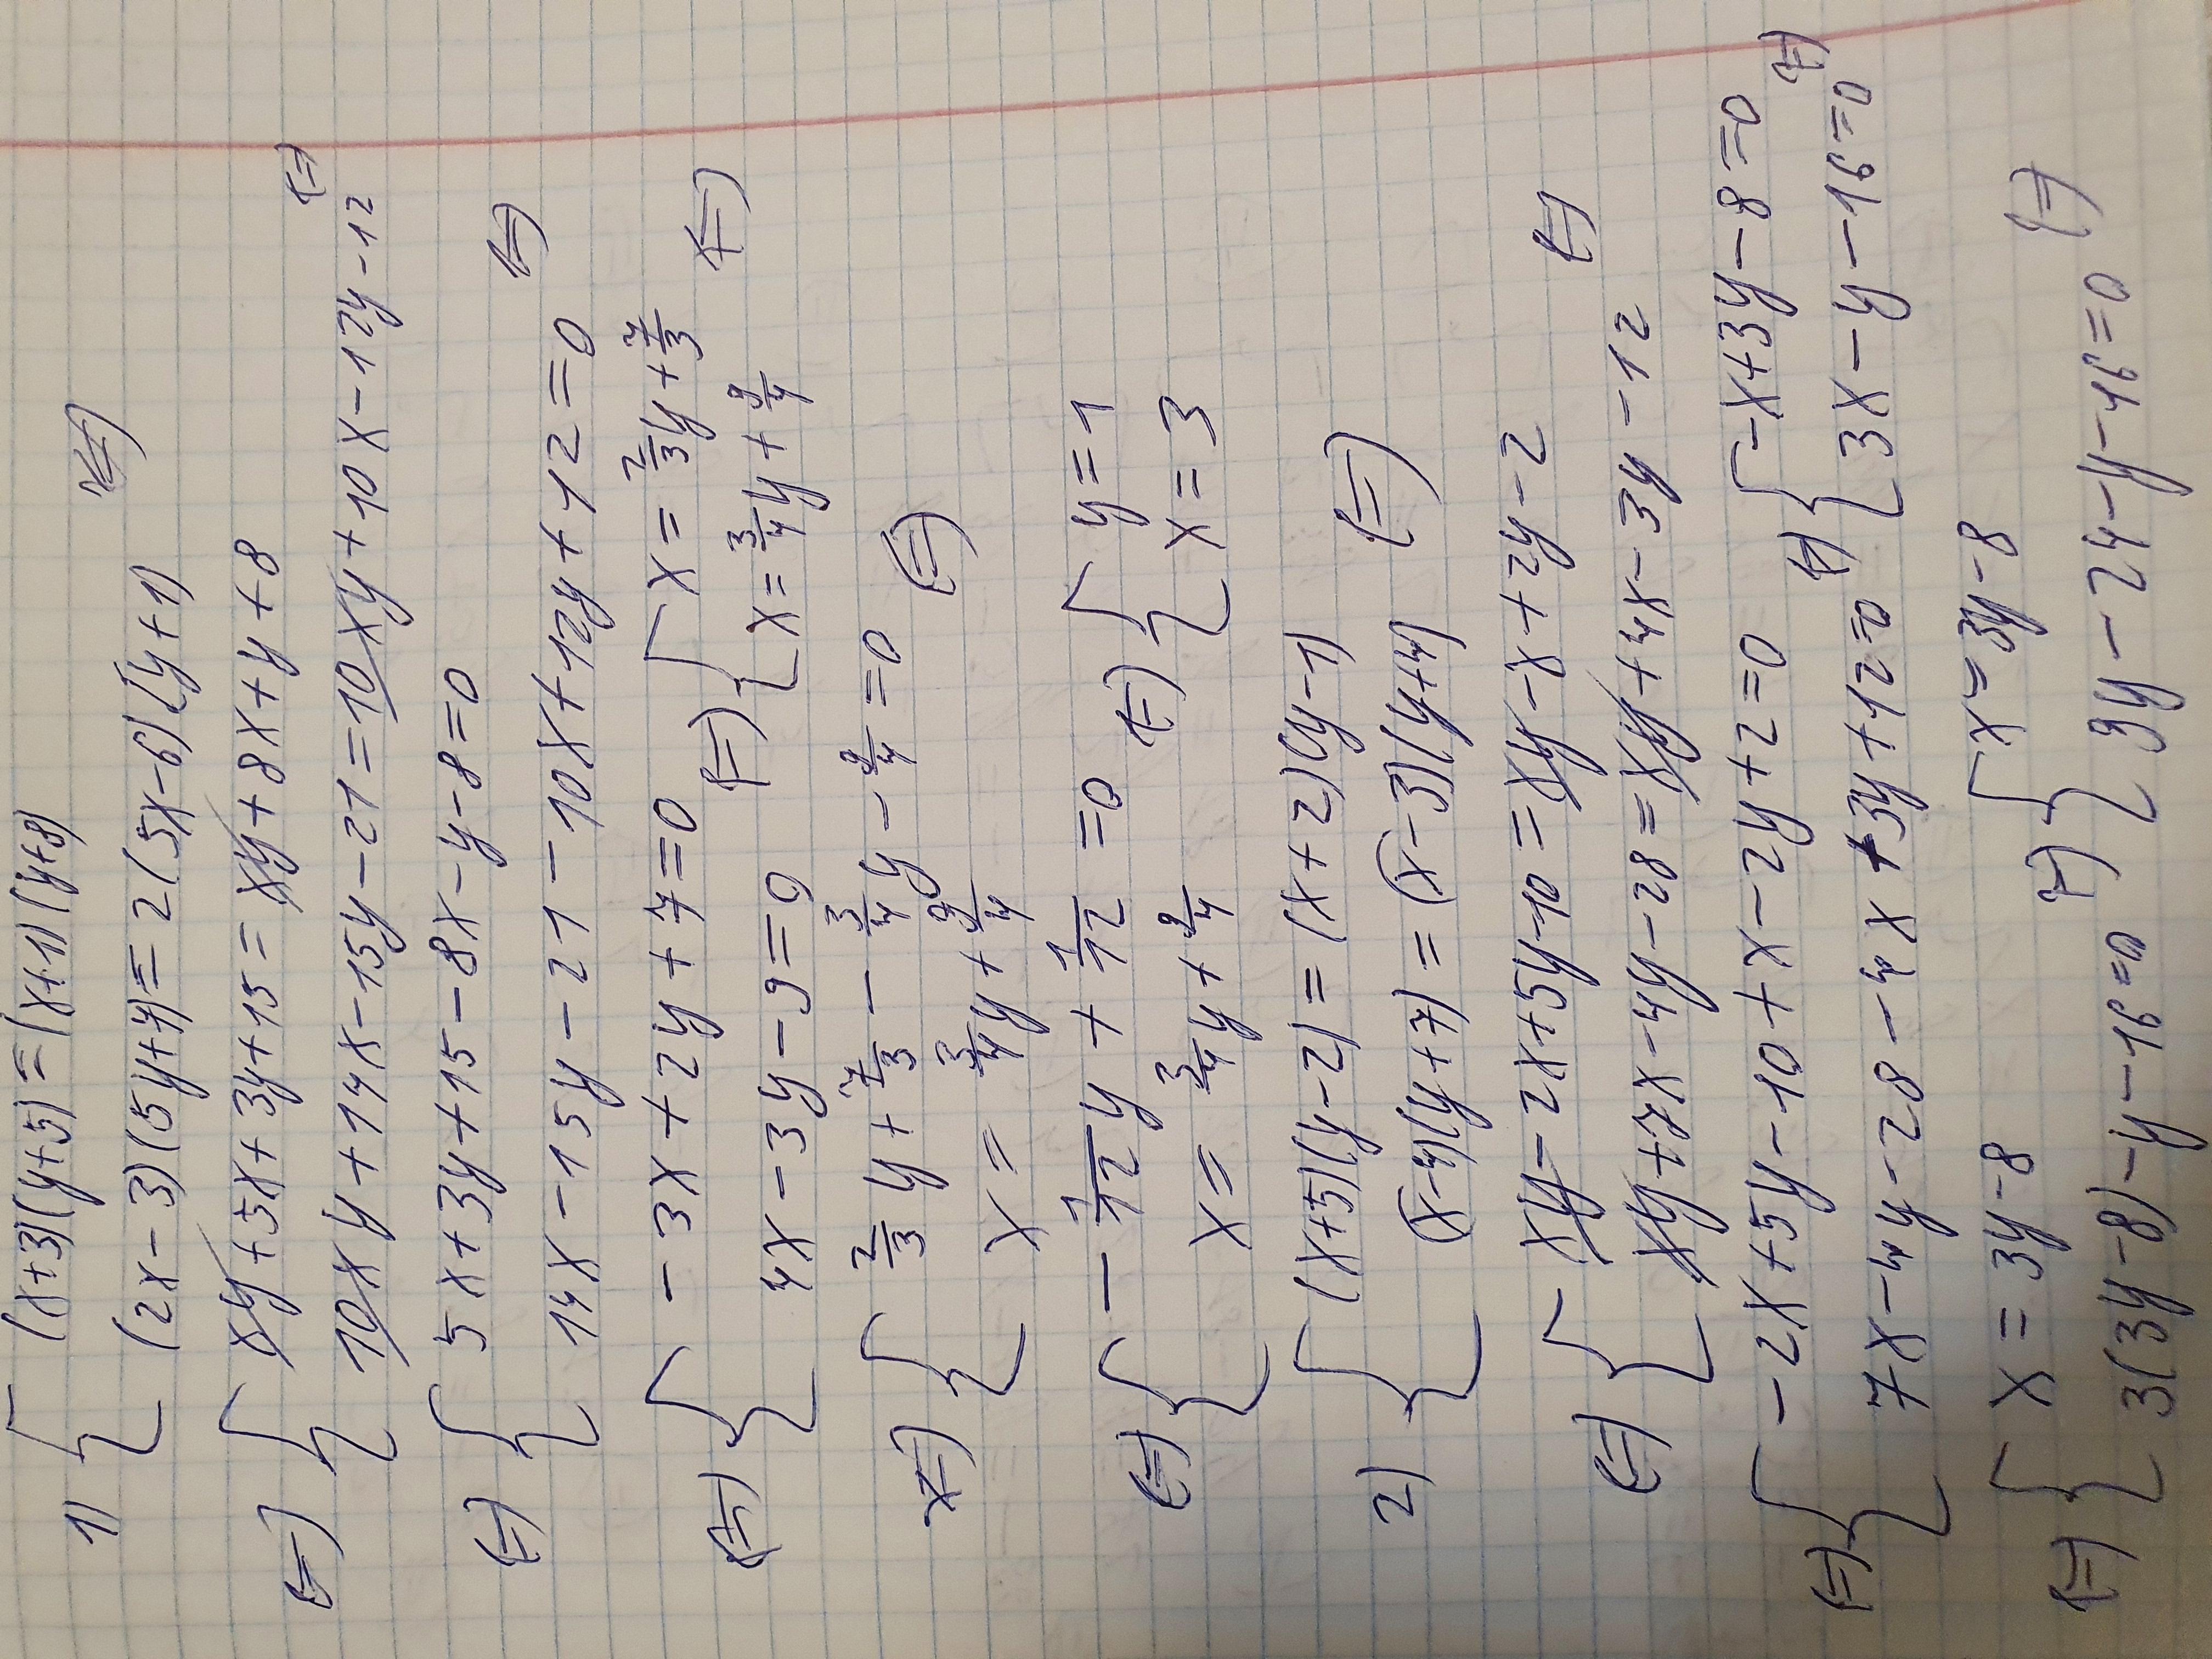 1) { (x+3)(y+5) = (x+1)(y+8)
(2x-3)(5y+7) = 2(5x-6)(y+1) (=)
(=) { xy+5x+3y+15 = xy+8x+y+8
10xy+14x-15y-21 = 10xy+10x-12y-12 (=)
(=) { 5x+3y+15-8x-y-8=0
14x-15y-21-10x+12y+12=0 (=)
(=) { -3x+2y+7=0 (=) { x = 2/3 y + 7/3
4x-3y-9=0 x = 3/4 y + 9/4 (=)
(=) { 2/3 y + 7/3 - 3/4 y - 9/4 = 0
x = 3/4 y + 9/4 (=)
(=) { -1/12 y + 1/12 = 0 (=) { y=1
x = 3/4 y + 9/4 x=3
2) { (x+5)(y-2) = (x+2)(y-1)
(x-4)(y+7) = (x-3)(y+4) (=)
(=) { xy-2x+5y-10 = xy-x+2y-2
xy+7x-4y-28 = xy+4x-3y-12 (=)
(=) { -2x+5y-10+x-2y+2=0 (=) { -x+3y-8=0
7x-4y-28-4x+3y+12=0 3x-y-16=0 (=)
(=) { x = 3y-8 (=) { x=3y-8
3(3y-8)-y-16=0 9y-24-y-16=0 (=)